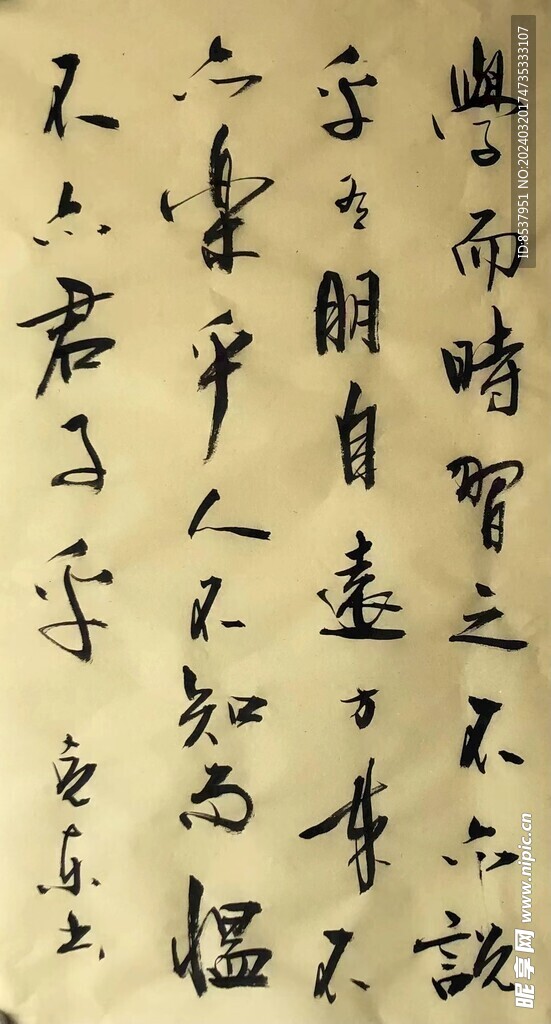 學而時習之不亦説
乎有朋自遠方来不
亦樂乎人不知而愠
不亦君子乎
东书
ID:8537951 NO:20240320174735333107
昵享网 www.nipic.cn